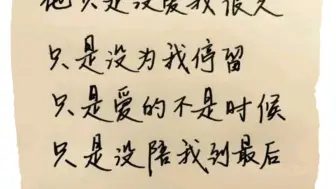 他只是没爱我很久
只是没为我停留
只是爱的不是时候
只是没陪我到最后